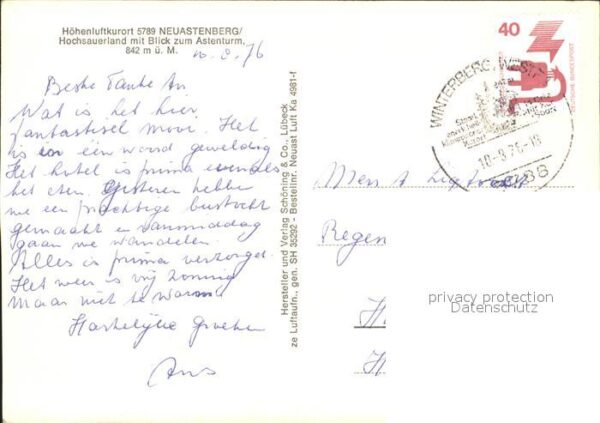 Höhenluftkurort 5789 NEUASTENBERG/
Hochsauerland mit Blick zum Astenturm,
842 m ü. M.
10.8.76
Beste Tante An.
Wat is het hier
fantastisch mooi. Het
is in één woord geweldig
Het hotel is prima evenals
het eten. Gisteren hebben
we een prachtige bustocht
gemaakt en vanmiddag
gaan we wandelen.
Alles is prima verzorgd.
Het weer is vrij zonnig
Maar niet te warm
Hartelijke Groeten
Ans
Hersteller und Verlag Schöning & Co., Lübeck
ze Luftaufn., gen. SH 35292 - Bestellnr. Neuast Luft Ka 4981-f
40
DEUTSCHE BUNDESPOST
WINTERBERG, WESTF
-10.-8.76-18
5788
Regen
privacy protection
Datenschutz